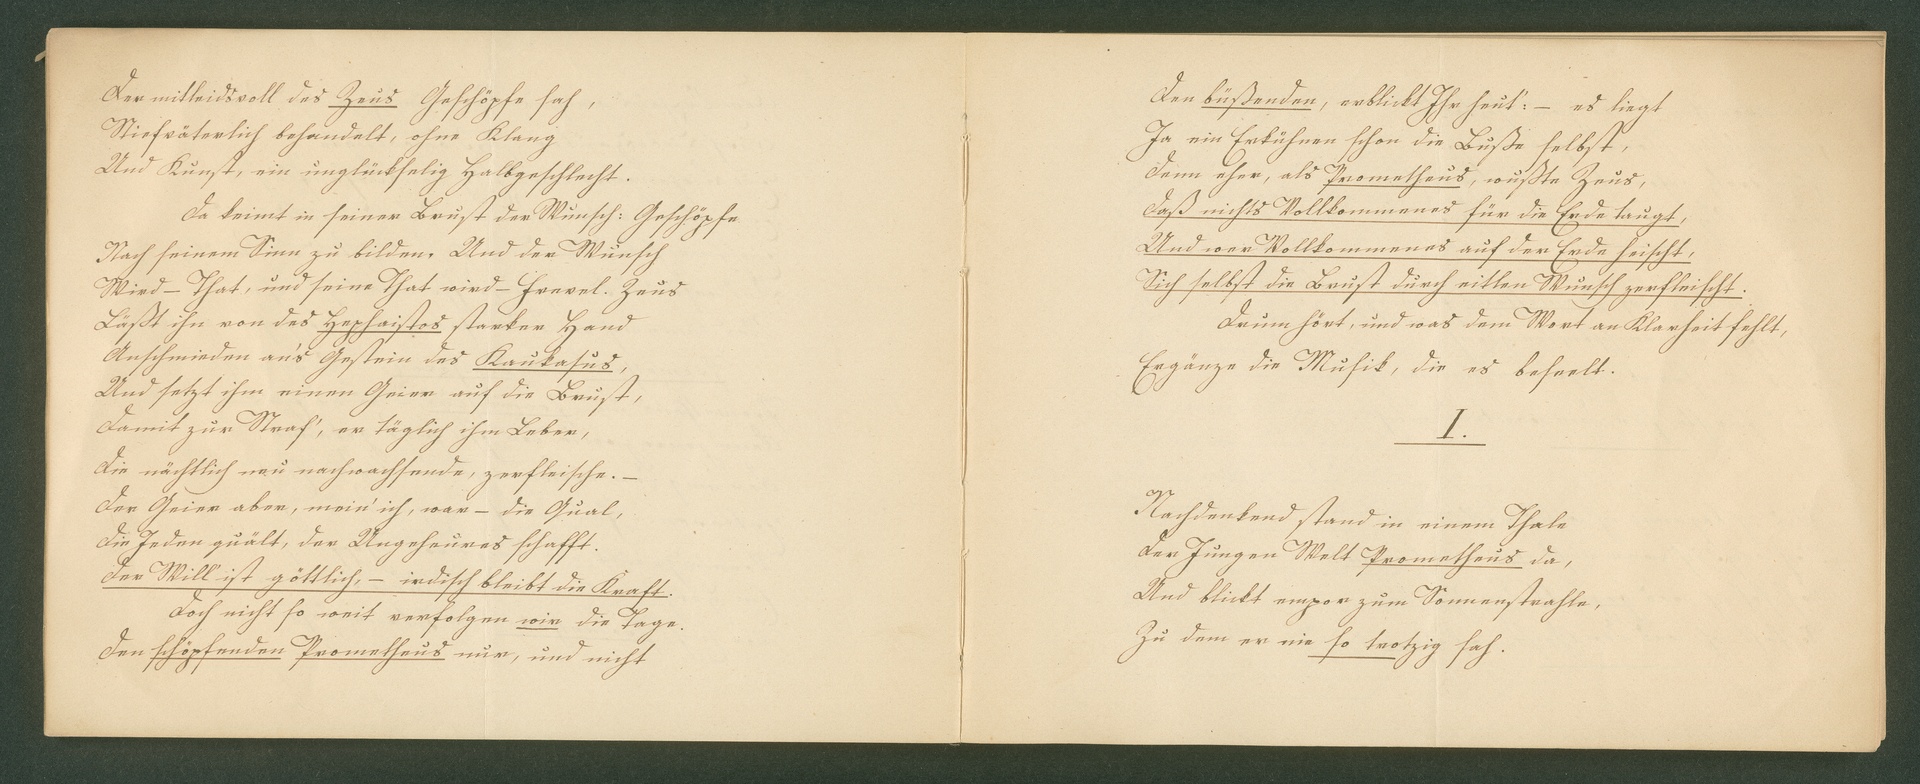 Der mitleidsvoll des Zeus Geschöpfe sah,
Stiefväterlich behandelt, ohne Klang
Und Kunst, ein unglückselig Halbgeschlecht.
Da keimt in seiner Brust der Wunsch: Geschöpfe
Nach seinem Sinn zu bilden. Und der Wunsch
Wird – That, und seine That wird – Frevel. Zeus
Läßt ihn von des Hephaistos starker Hand
Anschmieden an's Gestein des Kaukasus,
Und setzt ihm einen Geier auf die Brust,
Damit zur Straf', er täglich ihm Leber,
Die nächtlich neu nachwachsende, zerfleische. –
Der Geier aber, mein' ich, war – die Qual,
Die Jeden quält, der Ungeheures schafft.
Der Will' ist göttlich, – irdisch bleibt die Kraft.
Doch nicht so weit verfolgen wir die Sage.
Den schöpfenden Prometheus nur, und nicht
Den büßenden, erblickt Ihr heut': – es liegt
Ja ein Erkühnen schon die Buße selbst,
Denn eher, als Prometheus, wußte Zeus,
Daß nichts Vollkommenes für die Erde taugt,
Und wer Vollkommenes auf der Erde heischt,
Sich selbst die Brust durch eitlen Wunsch zerfleischt.
Drum hört, und was dem Wort an Klarheit fehlt,
Ergänze die Musik, die es beseelt.
I.
Nachdenkend stand in einem Thale
Der Jungen Welt Prometheus da,
Und blickt empor zum Sonnenstrahle,
Zu dem er nie so trotzig sah.